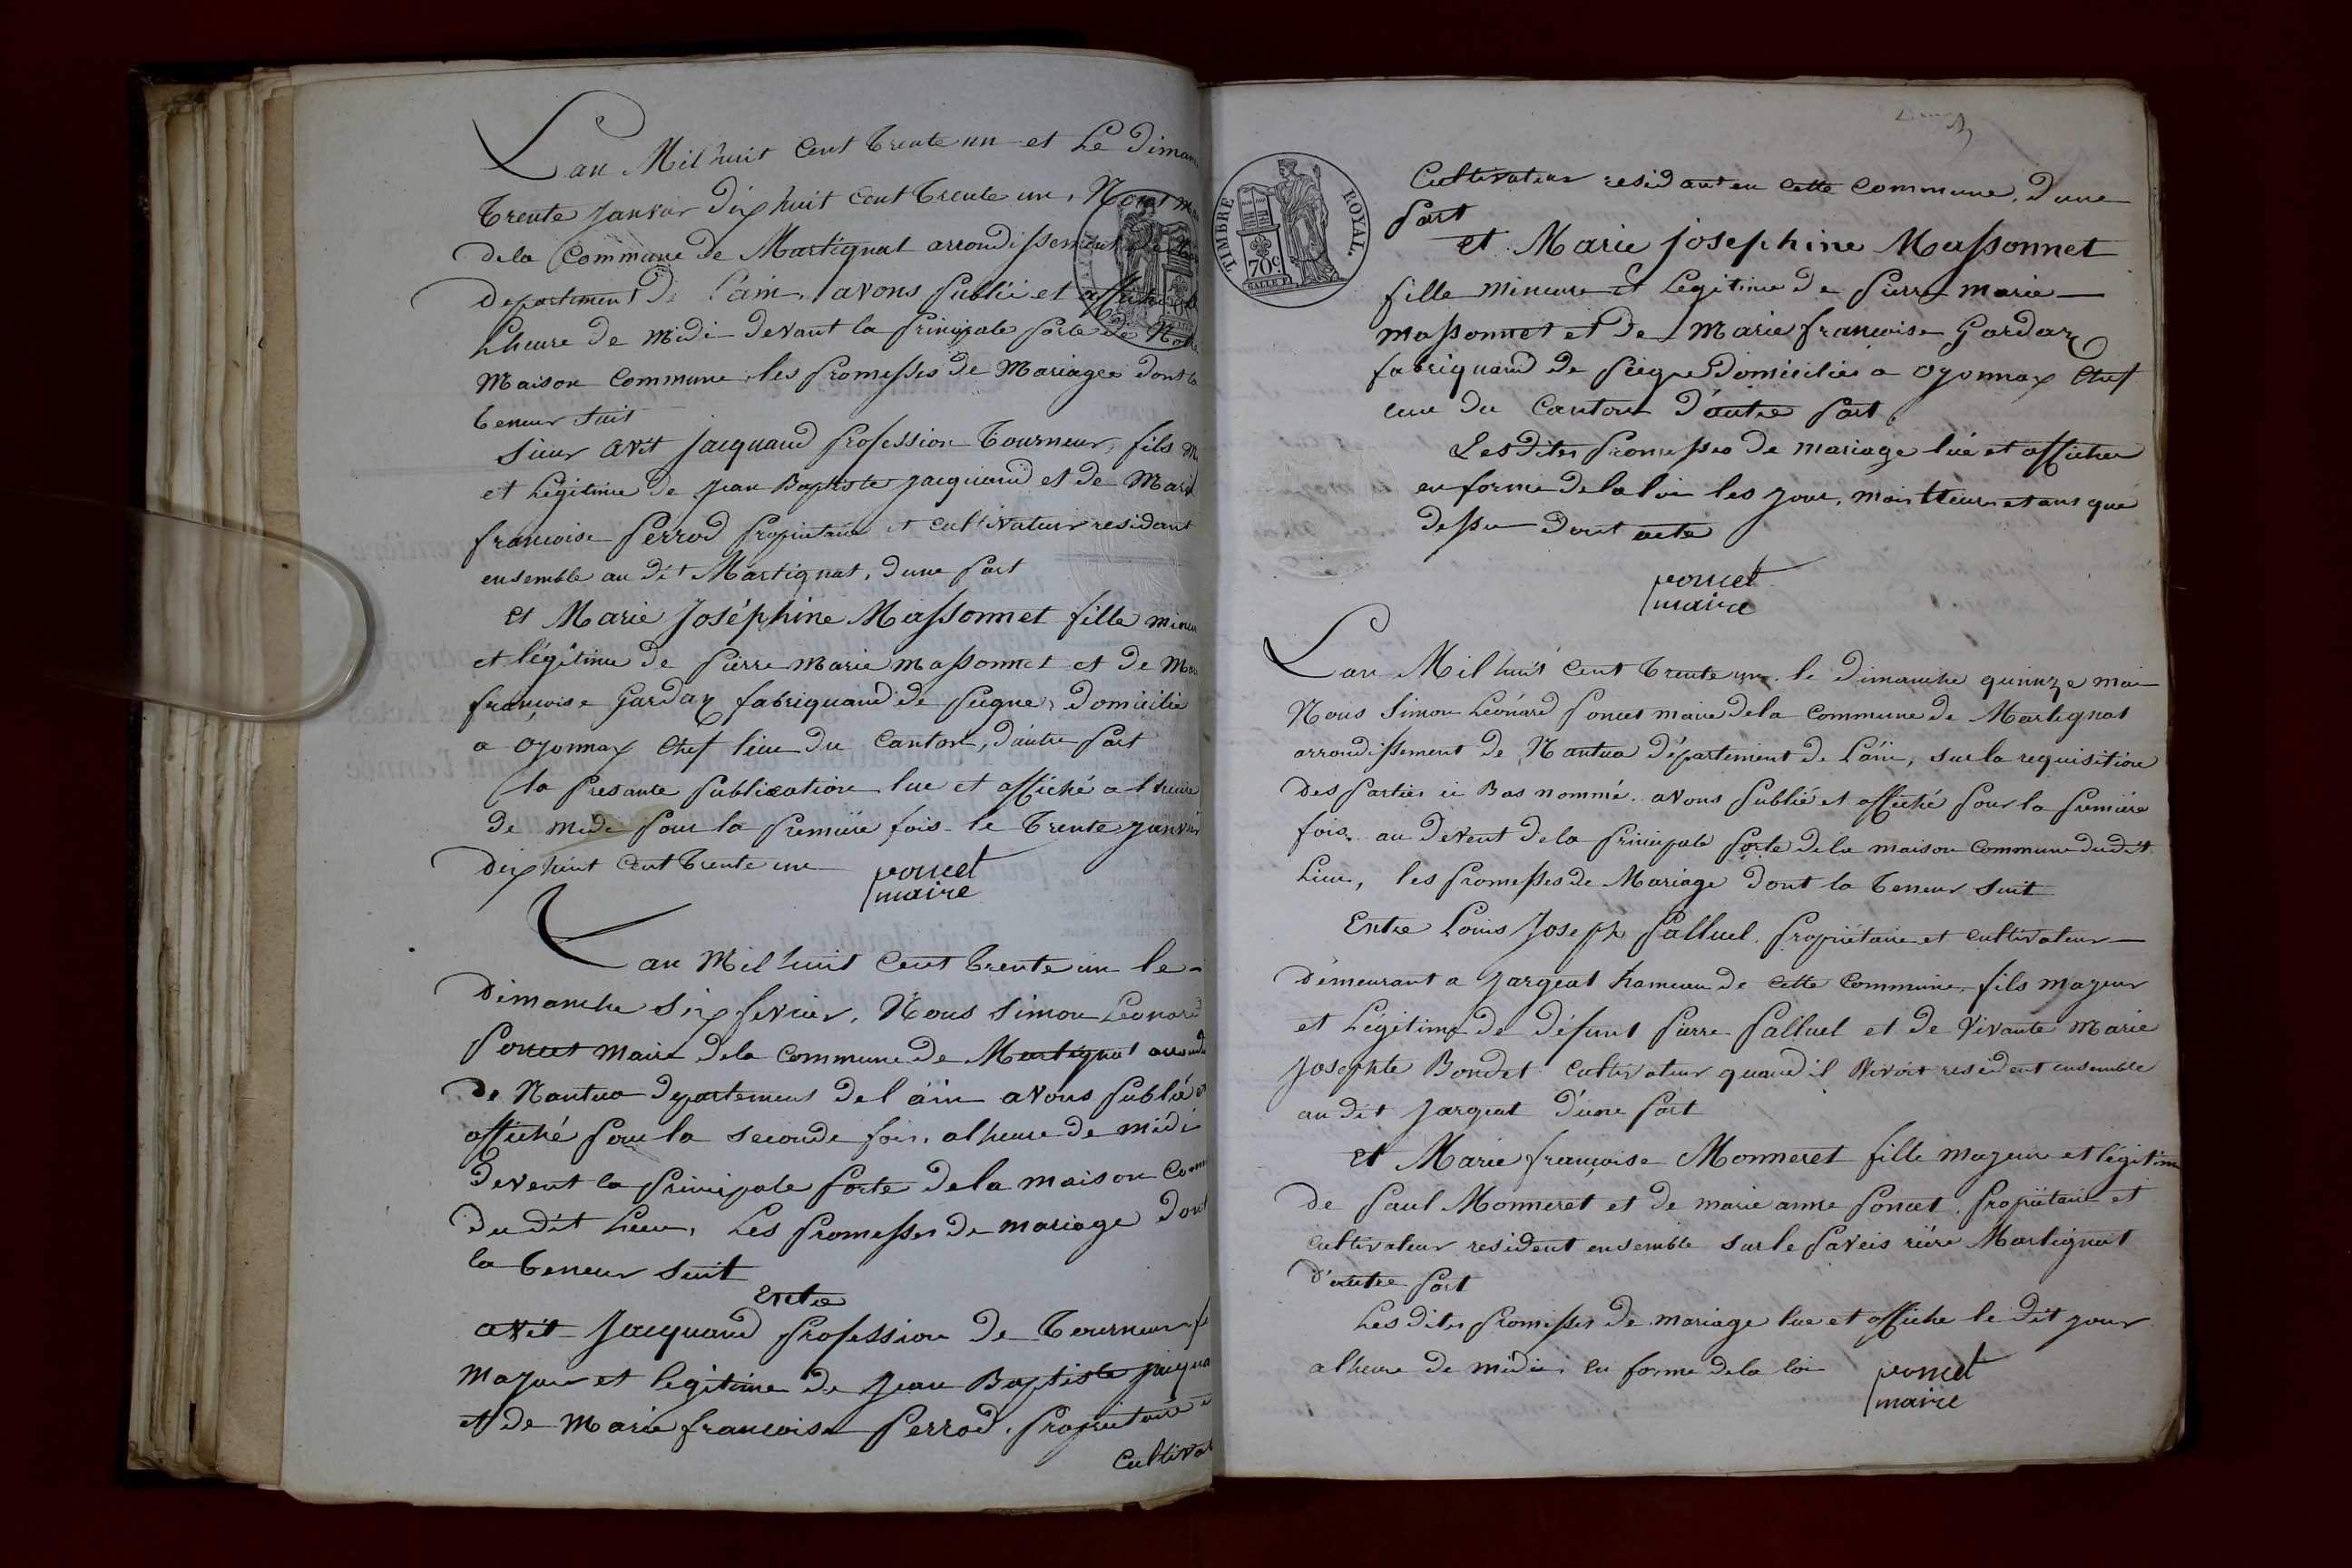 Lan Mil huit Cent trente un et Le Diman
trente Janvier dix huit Cent trente un, Nous m
dela Commune de Martignat arrondissement de
Departement de l'ain, avons publié et affiché
Lheure de Midi devant la principale porte de Notre
Maison Commune, les promesses de Mariages dont la
teneur suit
Sieur avit Jacquand profession tourneur, fils m
et Légitime de Jean Baptiste Jacquand et de Marie
francoise perrod propriétaire et cultivateur residant
ensemble au dit Martignat, dune part
et Marie Joséphine Massonnet fille mineu
et légitime de pierre Marie Massonnet et de Ma
françoise Gardaz fabriquand de peigne, domicilié
a oyonnax Chef lieu du Canton, d'autre part
la presante publication lue et affiché a lheure
de midi pour la premiere fois le trente Janvier
dix huit cent trente un poncet
maire
Lan Mil huit Cent trente un le
dimanche six fevrier, Nous Simon Leonard
poncet maire dela commune de Martignat arrondi
de Nantua departement de l'ain avons publié et
affiché pour la seconde fois, alheure de midi
devent la principale porte dela maison Comm
du dit Lieu, Les promesses de mariage dont
la teneur suit
Entre
avit Jacquand profession de tourneur fi
majeur et legitime de Jean Baptiste Jacqua
et de Marie francoise perrod, propriétaire e
Cultivat
Cultivateur residant en cette Commune, d'une
part
et Marie Josephine Massonnet
fille mineure et Légitime de pierre marie
massonnet et de Marie françoise Gardaz
fabriquand de peigne domiciliée a oyonnax Chef
lieu du Canton d'autre part
Lesdites promesses de mariage lué et affichée
en forme dela loi les jour, mois heure et ans que
dessu dont acte
poncet
maire
Lan Mil huit Cent trente un le dimanche quinze mai
Nous Simon Léonard poncet maire dela commune de Martignat
arrondissement de Nantua département de L'ain, sur la requisitione
des partie ci Bas nommé, avons publié et affiché pour la premiére
fois, au devent dela principale porte dela maison commune dudit
Lieu, les promesses de Mariage dont la teneur suit
Entre Louis Joseph palluel, propriétaire et cultivateur
démeurant a Jargeat hameau de cette Commune, fils majeur
et Légitime de défunt pierre palluel et de vivante Marie
Josephte Bondet cultivateur quand il vivoit resident ensemble
au dit Jargeat d'une part
et Marie françoise Monneret fille majeure et légitime
de paul Monneret et de marie anne poncet, propriétaire et
cultivateur resident ensemble sur le paveis riére Martignat
d'autre part
Les dites promesses de mariage lue et affiche le dit jour
alheure de midi, en forme dela loi poncet
maire
TIMBRE ROYAL
70c